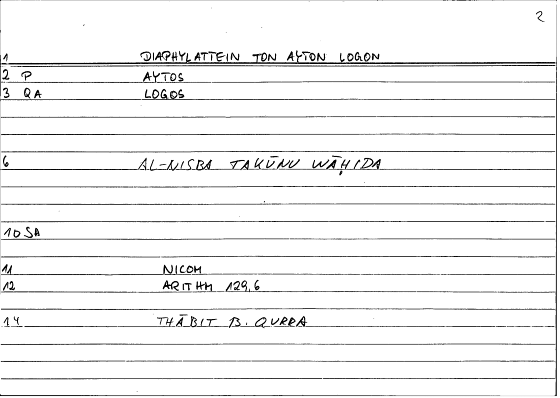 2
1 DIAPHYLATTEIN TON AYTON LOGON
2 P AYTOS
3 QA LOGOS
6 AL-NISBA TAKŪNU WĀḤIDA
10 SA
11 NICOM
12 ARITHM 129,6
14 THĀBIT B. QURRA